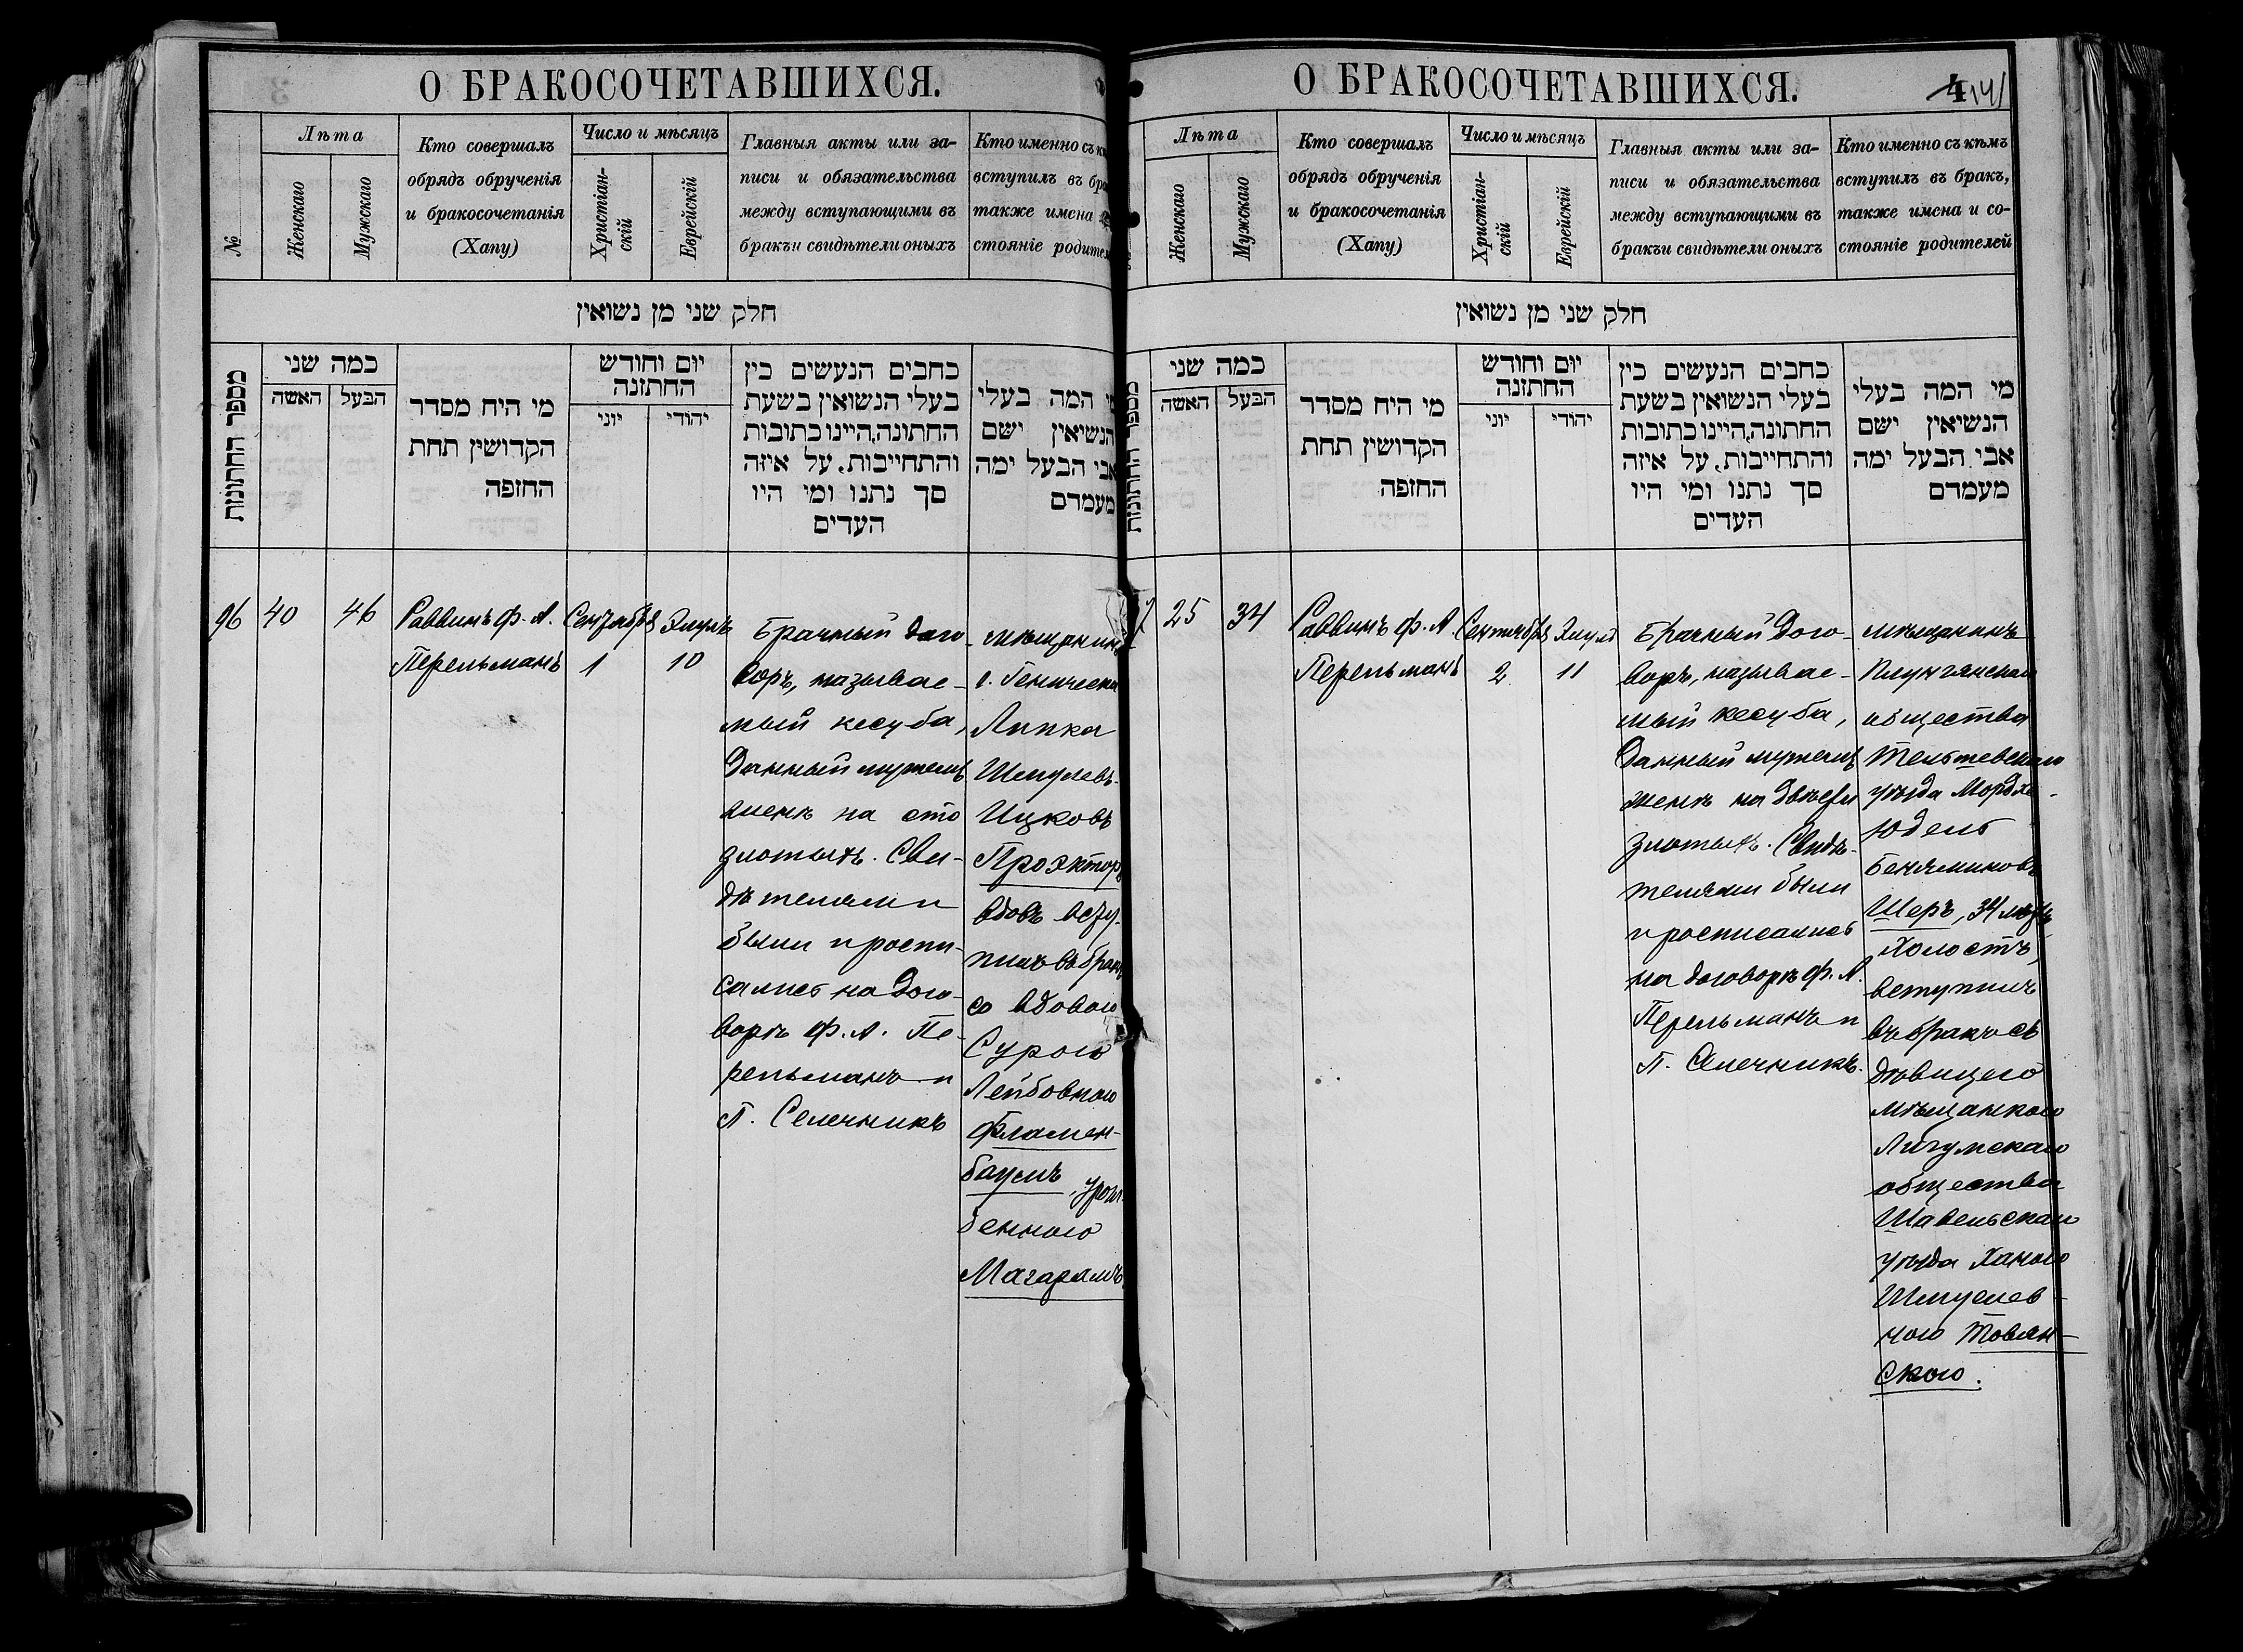 О БРАКОСОЧЕТАВШИХСЯ.
№
Лѣта
Женскаго
Мужскаго
Кто совершалъ
обрядъ обрученія
и бракосочетанія
(Хапу)
Число и мѣсяцъ
Христіан-
скій
Еврейскій
Главныя акты или за-
писи и обязательства
между вступающими въ
бракъ и свидѣтели оныхъ
Кто именно съ
вступилъ въ
также имена
стояніе
חלק שני מן נשואין
מספר החתונות
כמה שני
האשה
הבעל
מי היה מסדר
הקדושין תחת
החופה
יום וחודש
החתונה
יוני
יהודי
כתבים הנעשים בין
בעלי הנשואין בשעת
החתונה, היינו כתובות
והתחייבות, על איזה
סך נתנו ומי היו
העדים
מי המה בעלי
הנשיאין ישם
אבי הבעל ימה
מעמדם
96
40
46
Раввинъ Ф. А.
Перельманъ
Сентябрь
1
Элулъ
10
Брачный дого
воръ, называе-
мый кесуба,
данный мужемъ
женѣ на сто
злотыхъ. Сви-
дѣтелями
были и роспи-
сались на дого-
ворѣ Ф. А. Пе-
рельманъ и
П. Селечникъ
мѣщанинъ
г. Геническа
Липка
Шмулевъ-
Ицковъ
Проэкторъ
вдовъ всту-
пилъ въ бракъ
со вдовою
Сурою
Лейбовною
Фламен-
баумъ, урож-
денною
Магарамъ
О БРАКОСОЧЕТАВШИХСЯ.
4 141
Лѣта
Женскаго
Мужскаго
Кто совершалъ
обрядъ обрученія
и бракосочетанія
(Хапу)
Число и мѣсяцъ
Христіан-
скій
Еврейскій
Главныя акты или за-
писи и обязательства
между вступающими въ
бракъ и свидѣтели оныхъ
Кто именно съ кѣмъ
вступилъ въ бракъ,
также имена и со-
стояніе родителей
חלק שני מן נשואין
מספר החתונות
כמה שני
האשה
הבעל
מי היה מסדר
הקדושין תחת
החופה
יום וחודש
החתונה
יוני
יהודי
כתבים הנעשים בין
בעלי הנשואין בשעת
החתונה, היינו כתובות
והתחייבות, על איזה
סך נתנו ומי היו
העדים
מי המה בעלי
הנשיאין ישם
אבי הבעל ימה
מעמדם
25
34
Раввинъ Ф. А.
Перельманъ
Сентябрь
2
Элулъ
11
Брачный дого-
воръ, называе-
мый кесуба,
данный мужемъ
женѣ на двѣсти
злотыхъ. Свидѣ-
телями были
и росписались
на договорѣ Ф. А.
Перельманъ и
П. Селечникъ.
мѣщанинъ
Плунгянскаго
общества
Тельшевскаго
уѣзда Мордхе-
Юдель
Беньяминовъ
Шеръ, 34 лѣтъ,
холостъ,
вступилъ
въ бракъ съ
дѣвицею
мѣщанкою
Лигумскаго
общества
Шавельскаго
уѣзда Ханою
Шмуелев-
ною Товян-
скою.